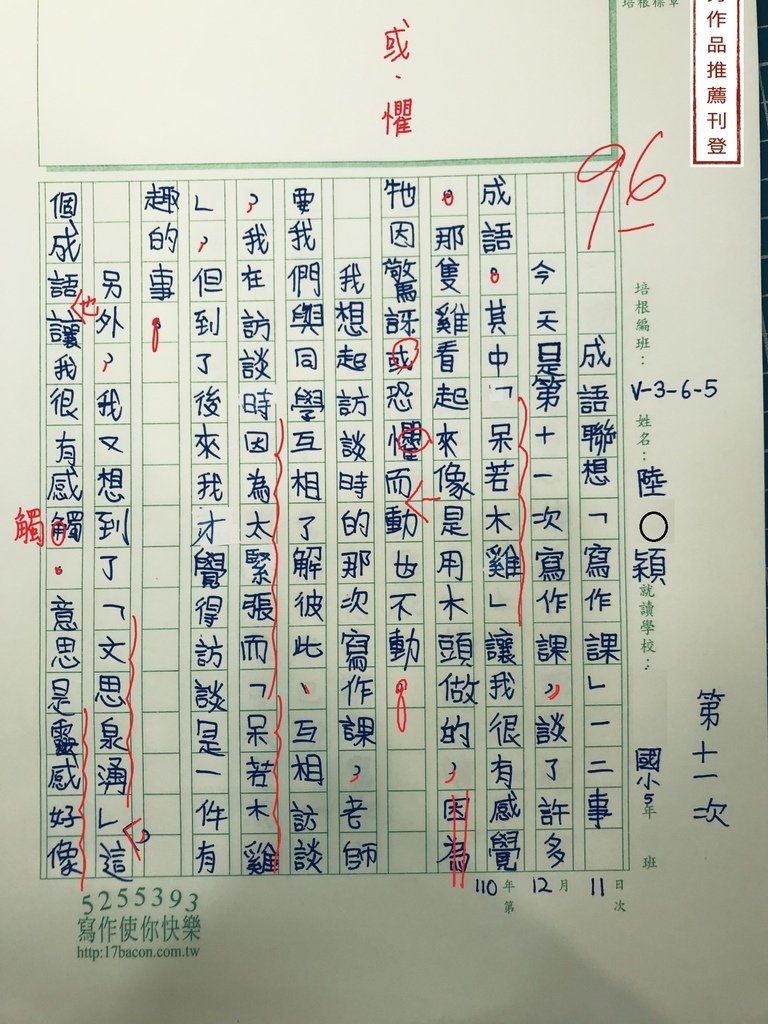 培根標章
作品推薦刊登
或．懼
96
培根編班：V-3-6-5
姓名：陸○穎
就讀學校：國小5年 班
第十一次
110年12月11日
第 次
成語聯想「寫作課」一二事
今天是第十一次寫作課，談了許多
成語。其中「呆若木雞」讓我很有感覺
。那隻雞看起來像是用木頭做的，因為
牠因驚訝或恐懼而動也不動。
我想起訪談時的那次寫作課，老師
要我們與同學互相了解彼此、互相訪談
，我在訪談時因為太緊張而「呆若木雞
」，但到了後來我才覺得訪談是一件有
趣的事。
另外，我又想到了「文思泉湧」，這
個成語也讓我很有感觸。意思是靈感好像
觸
5255393
寫作使你快樂
http:17bacon.com.tw